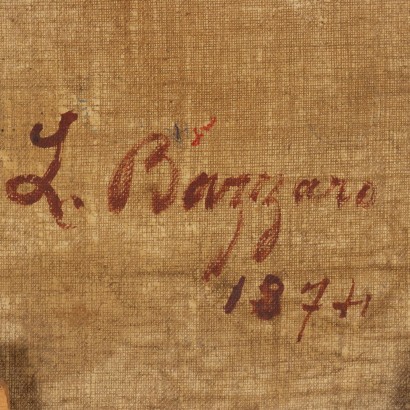 L. Bazzaro
1874